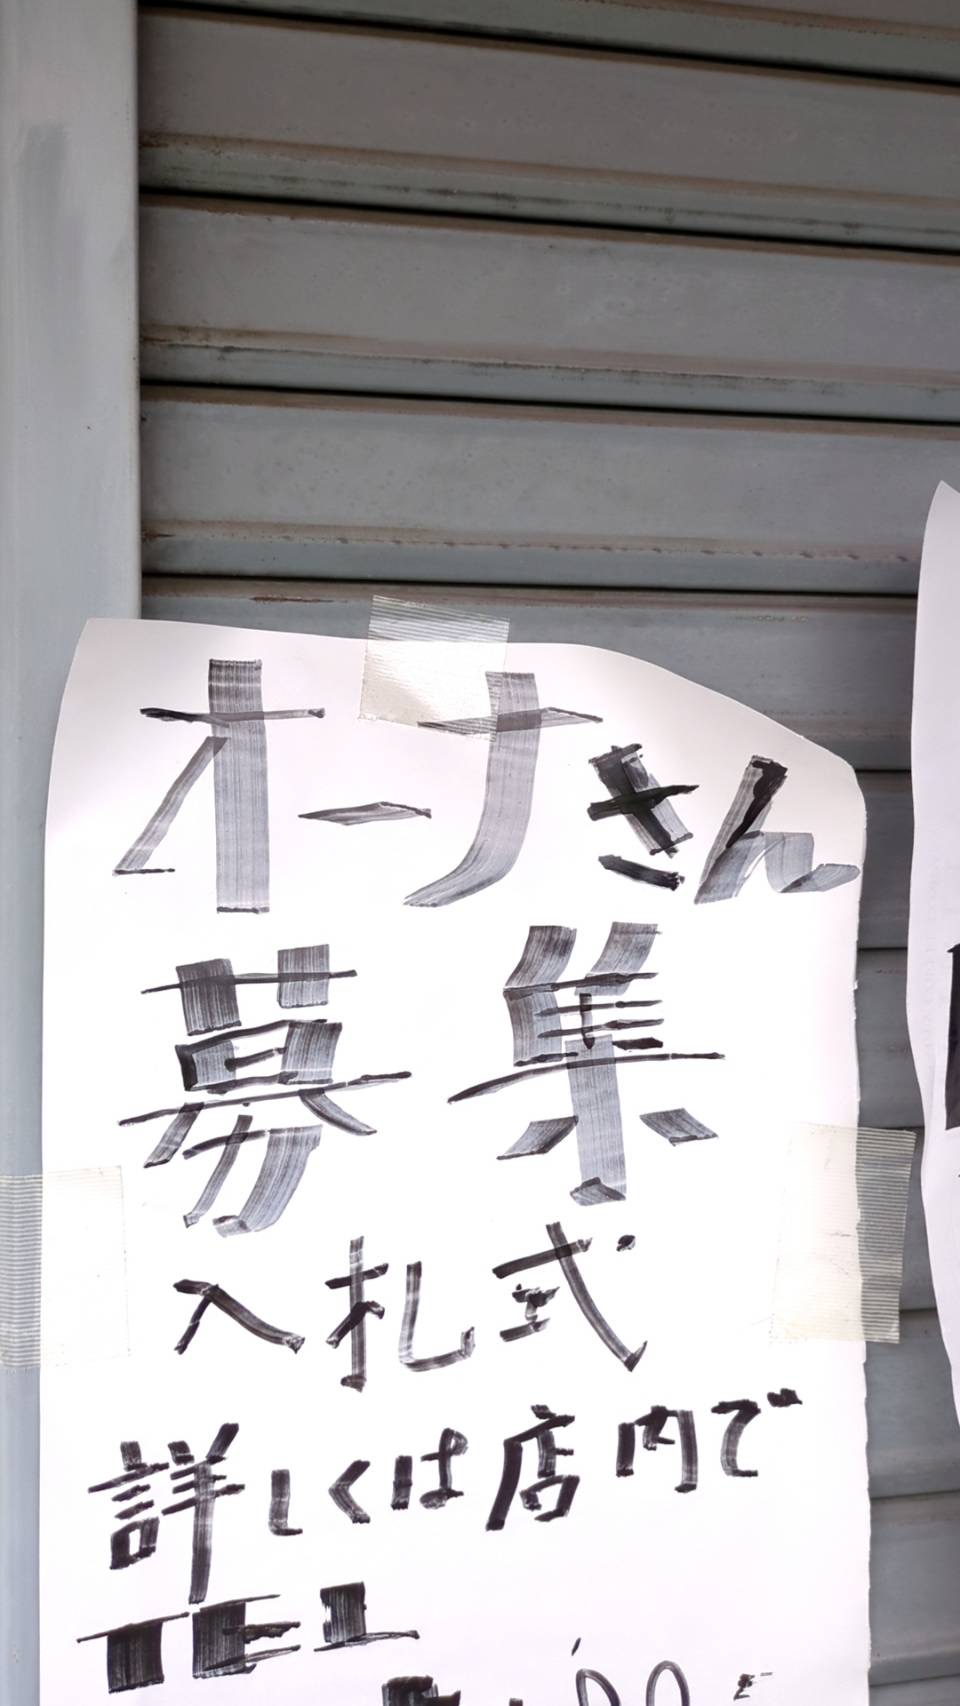 オーナさん
募集
入札式
詳しくは店内で
TEL